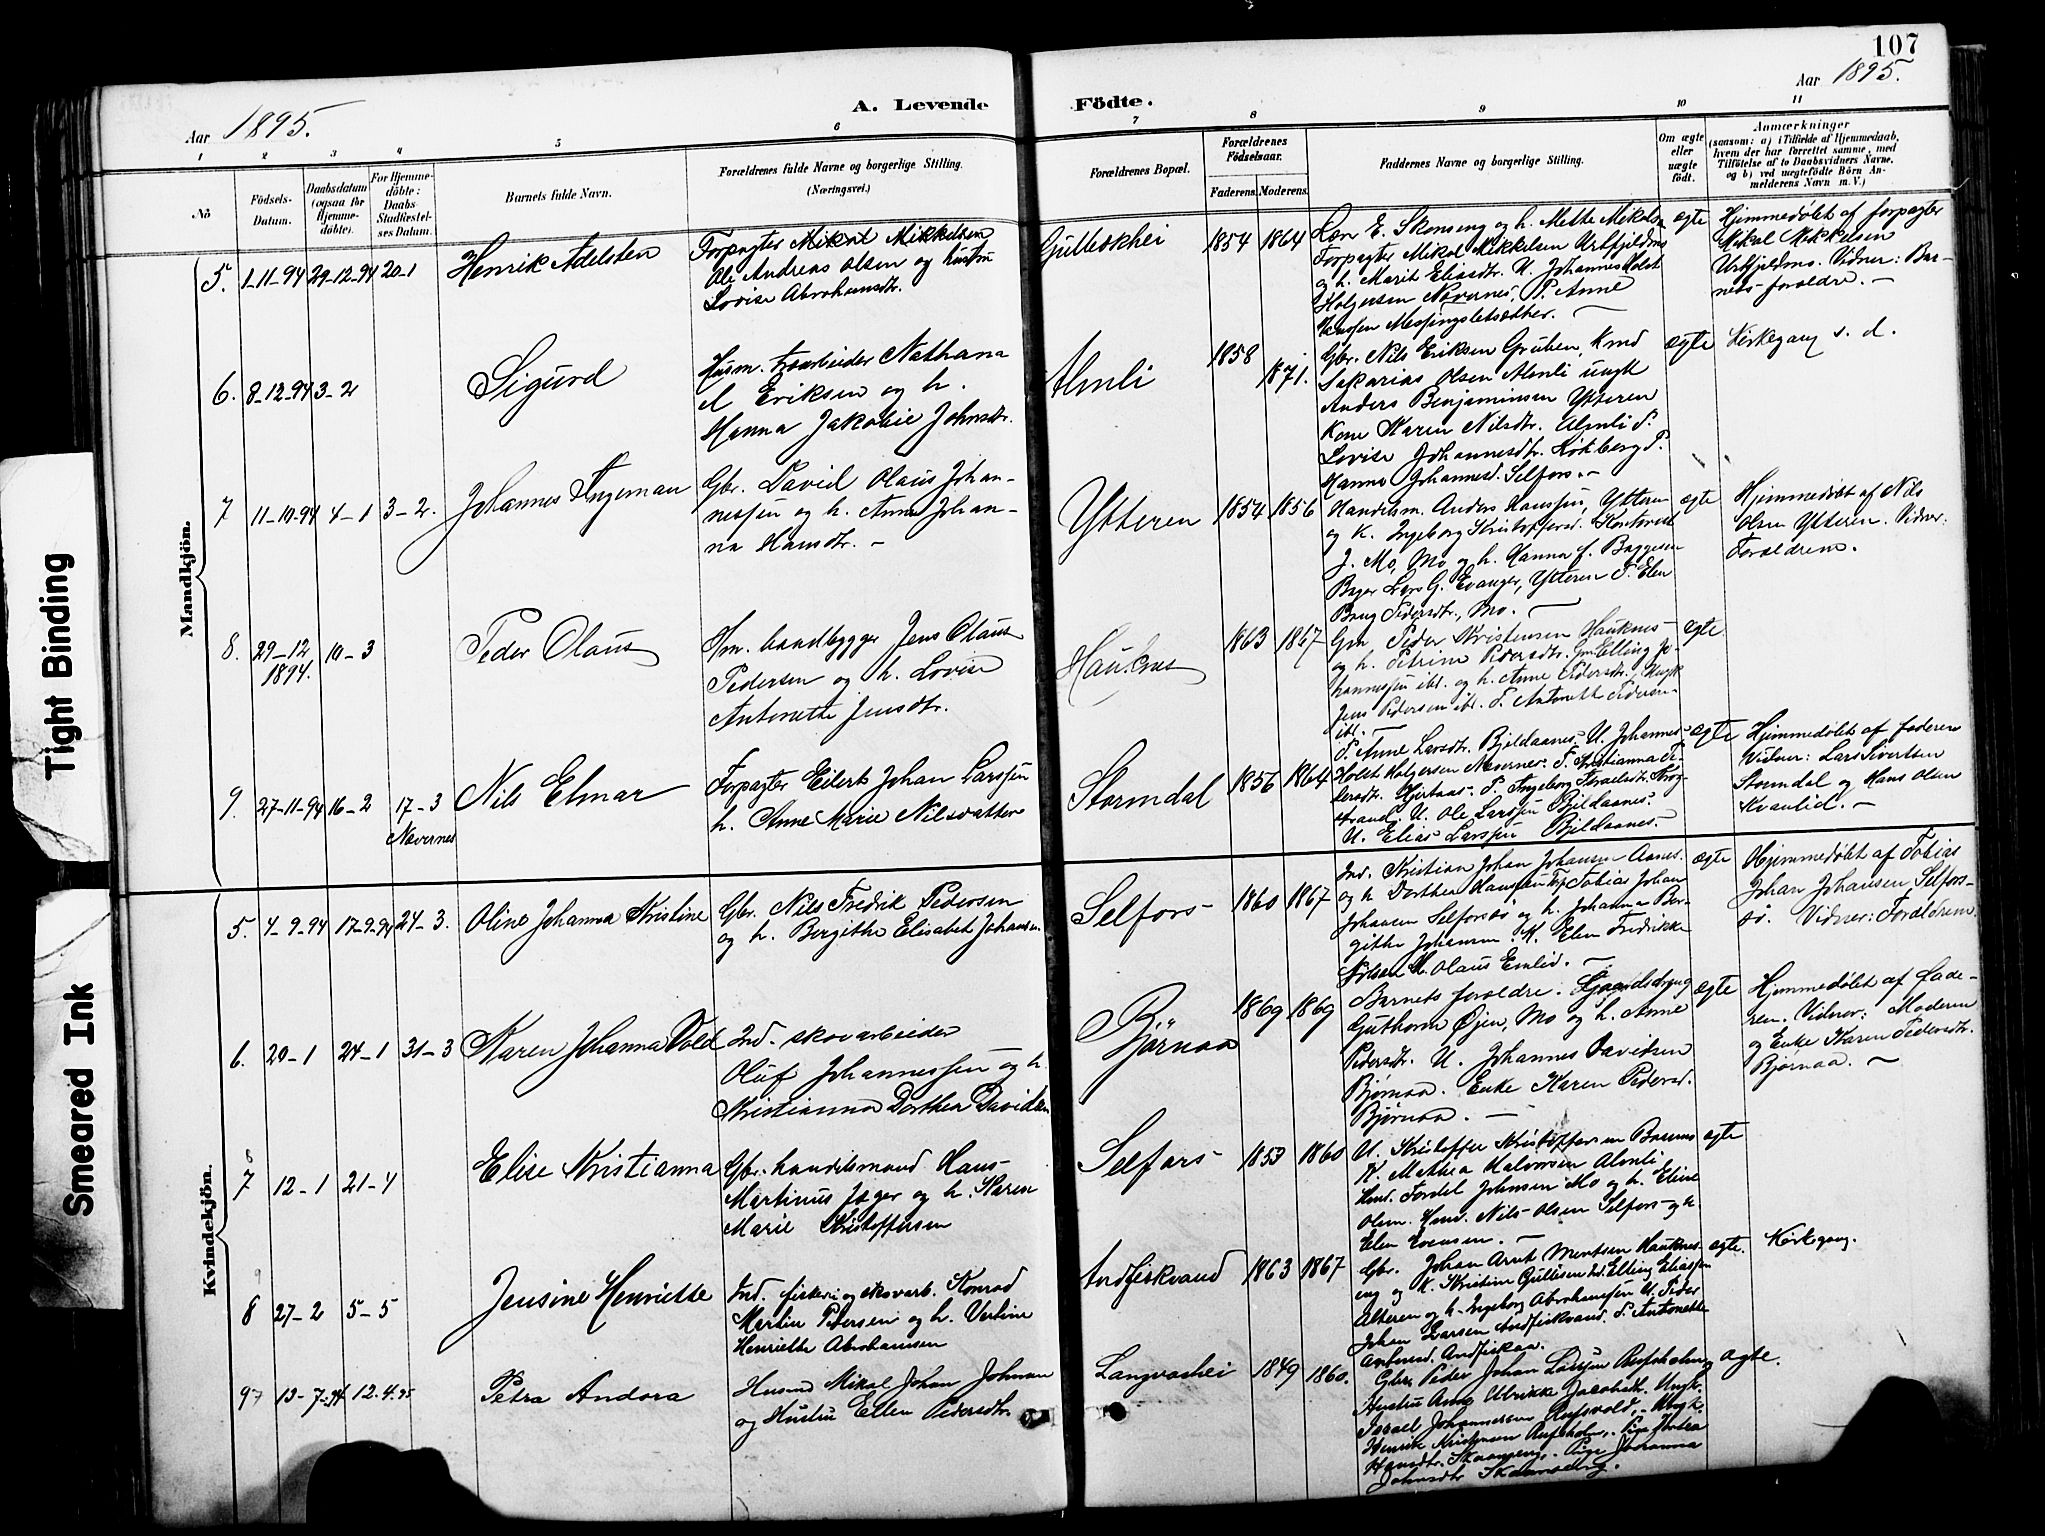 107
Aar 1895.
A. Levende Födte.
Aar 1895.
1 2 3 4 5 6 7 8 9 10 11
No
Födsels-
Datum.
Daabsdatum
(ogsaa for
Hjemme-
döbte).
For Hjemme-
döbte:
Daabs-
Stadfæstel-
ses Datum.
Barnets fulde Navn.
Forældrenes fulde Navne og borgerlige Stilling.
(Næringsvei.)
Forældrenes Bopæl.
Forældrenes
Födselsaar.
Faderens. Moderens.
Faddernes Navne og borgerlige Stilling.
Om ægte
eller
uægte
födt.
Anmærkninger
(saasom: a) i Tilfælde af Hjemmedaab,
hvem der har forrettet samme, med
Tilföielse af to Daabsvidners Navne,
og b) ved uægtefödte Börn An-
melderens Navn m. V.)
Mandkjön.
5. 1-11-94 29-12-94 20-1
Henrik Adelsten
Forpagter Mikal Mikkelsen
Ole Andreas Olsen og hustru
Lovise Abrahamsdtr.
1854 1864
Forpagter Mikal Mikkelsen Urtfjeldmo
og h. Marit Eliasdtr. U. Johannes Holst
Holgersen Nævernes, P. Anne
ægte
Hjemmedøbt af forpagter
Mikal Mikkelsen
Urtfjeldmo. Vidner: Bar-
nets forældre. —
6. 8-12-94 3-2
Sigurd
Husm. Nathana
el Eriksen og h.
Hanna Jakobie Johnsdtr.
Almli
1858 1871.
Gbr. Nils Eriksen Gruben, Kmd
Sakarias Olsen Almli ungk
Anders Benjaminsen Ytteren
Kone Karen Nilsdtr. Almli P.
Lovise Johannesdtr. P.
Hanna Johannesd. Selfors. —
ægte
Kirkegang s. d.
7 11-10-94 4-1 3-2.
Johannes Ingeman
Gbr. David Olaus Johan-
nessen og h. Anna Johan-
na Hansdtr. —
Ytteren
1854 1856
Handelsm. Anders Hanssen, Ytteren
og K. Ingeborg Kristoffersd. Kontorist
J. Mo, Mo og h. Hanna f. Baggesen
Lars G. Evanger, Ytteren P. Elen
Pedersdtr., Mo. —
ægte
Hjemmedøbt af Nils
Olsen Ytteren. Vidner:
Forældrene.
8. 29-12
1894. 10-3
Peder Olaus
Hm. baadbygger Jens Olaus
Pedersen og h. Lovise
Antonette Jensdtr.
Hauknes
1863 1867
Gm Peder Kristensen Hauknes
og h. Petrine Pedersdtr. Gm Elling Jo-
hannessen ibd. og h. Anne Pedersdtr., Ungk
Jens Pedersen ibd. P. Antonett Pedersen
ibd. —
ægte
9. 27-11-94 16-2 17-3
Nævernes
Nils Elmar
Forpagter Eilert Johan Larssen
h. Anne Marie Nilsdatter
Stormdal
1856 1864
P. Anne Larsdtr. Bjeldaanes. U. Johannes
Holst Holgersen Nævernes. P. Kristianna
P. Ingeborg Israelsdtr.
U. Ole Larssen Bjeldaanes.
U. Elias Larssen Bjeldaanes.
ægte
Hjemmedøbt af faderen
Vidner: Lars Sivertsen
Stormdal og Hans Olsen
Kvanlid. —
Kvindekjön.
5. 4-9-94 17-9-94 24-3.
Oline Johanna Kristine
Gbr. Nils Fredrik Pedersen
og h. Bergithe Elisabet Johansen.
Selfors
1860 1867
Ind. Kristian Johan Johansen Aanes.
og h. Dorthea Hanssen Tobias Johan
Johansen Selforsø og h. Johanna Ber-
githe Johansen. K. Elen Fredrikke
Nilsen U. Olaus Enlid. —
ægte
Hjemmedøbt af Tobias
Johan Johansen Selfors-
ø. Vidner: Forældrene.
6. 20-1 24-1 31-3
Karen Johanna Vold
Ind. skovarbeider
Oluf Johannessen og h.
Kristianna Dorthea Davidsen
Bjørnaa
1869 1869
Barnets forældre.
Guthorm Øjen, Mo og h. Anne
Pedersdtr. U. Johannes Davidsen
Bjørnaa. Enke Karen Pedersd.
Bjørnaa. —
ægte
Hjemmedøbt af fade-
ren. Vidner: Moderen
og Enke Karen Pedersdtr.
Bjørnaa. —
7 12-1 21-4
Elise Kristianna
Gbr. handelsmand Hans
Martinus Jæger og h. Karen
Marie Kristoffersen
Selfors
1853 1860
U. Kristoffer Kristoffersen
K. Mathea Halvorsen Almli
Hmd. Fordel Johnsen Mo og h. Eline
Olsen. Hmd. Nils Olsen Selfors og h.
Elen Evensen. —
ægte
8 27-2 5-5
Jensine Henriette
Ind. fisker og skovarb. Konrad
Martin Pedersen og h. Verline
Henriette Abrahamsen
Andfiskvand
1863 1867
Gbr. Johan Arnt Mentsen Hauknes
og K. Kristine Gullesen Ind. Elling Eliassen
Alteren og h. Ingeborg Abrahamsen U. Peder
Johan Larsen Andfiskvand. P. Antonette
Andfiskaa.
ægte.
Kirkegang.
9 13-7-94 12.4.95
Petra Andora
Husmd Mikal Johan Johnsen
og Hustru Ellen Pedersdtr
Langvashei
1849 1860.
Gbr. Peder Johan Larssen
Hustru Anna Ulrikke Jacobsdtr. Ungk.
Israel Johannessen Ungk.
Henrik Kristensen
Hansdtr. Pige Johanna
Johnsdtr
ægte.
Tight Binding
Smeared Ink